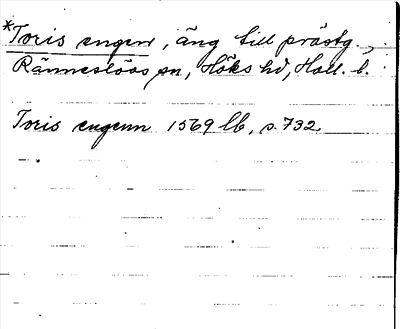 *Toris engen, äng till prästg.,
Ränneslövs sn, Höks hd, Hall. l.
Toris engenn 1569 lb, s. 732